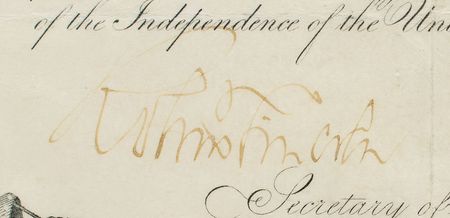 of the Independence of the Uni
Robert T. Lincoln
Secretary of